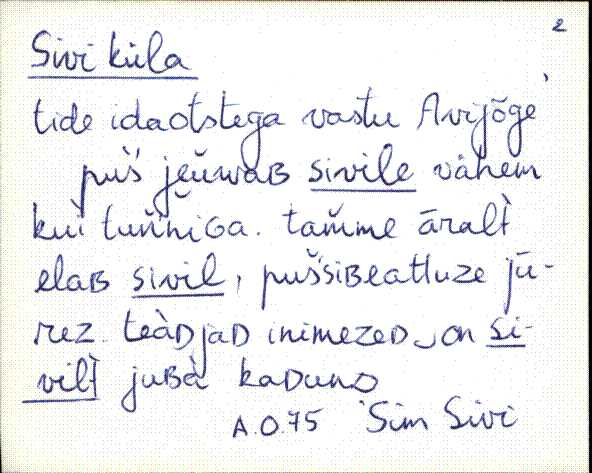 2
Sivi küla
tide idaotstega vastu Avijõge
puš́ jeŭwaʙ sivile vähem
kui tuňńiɢa. tam̆me āralt̀
elaʙ sivil, pušsiʙeatluze jū-
rez. teàᴅjaᴅ inimezeᴅ on si-
vilt̀ juʙà kaᴅunᴅ
A.O.75 Sim Sivi